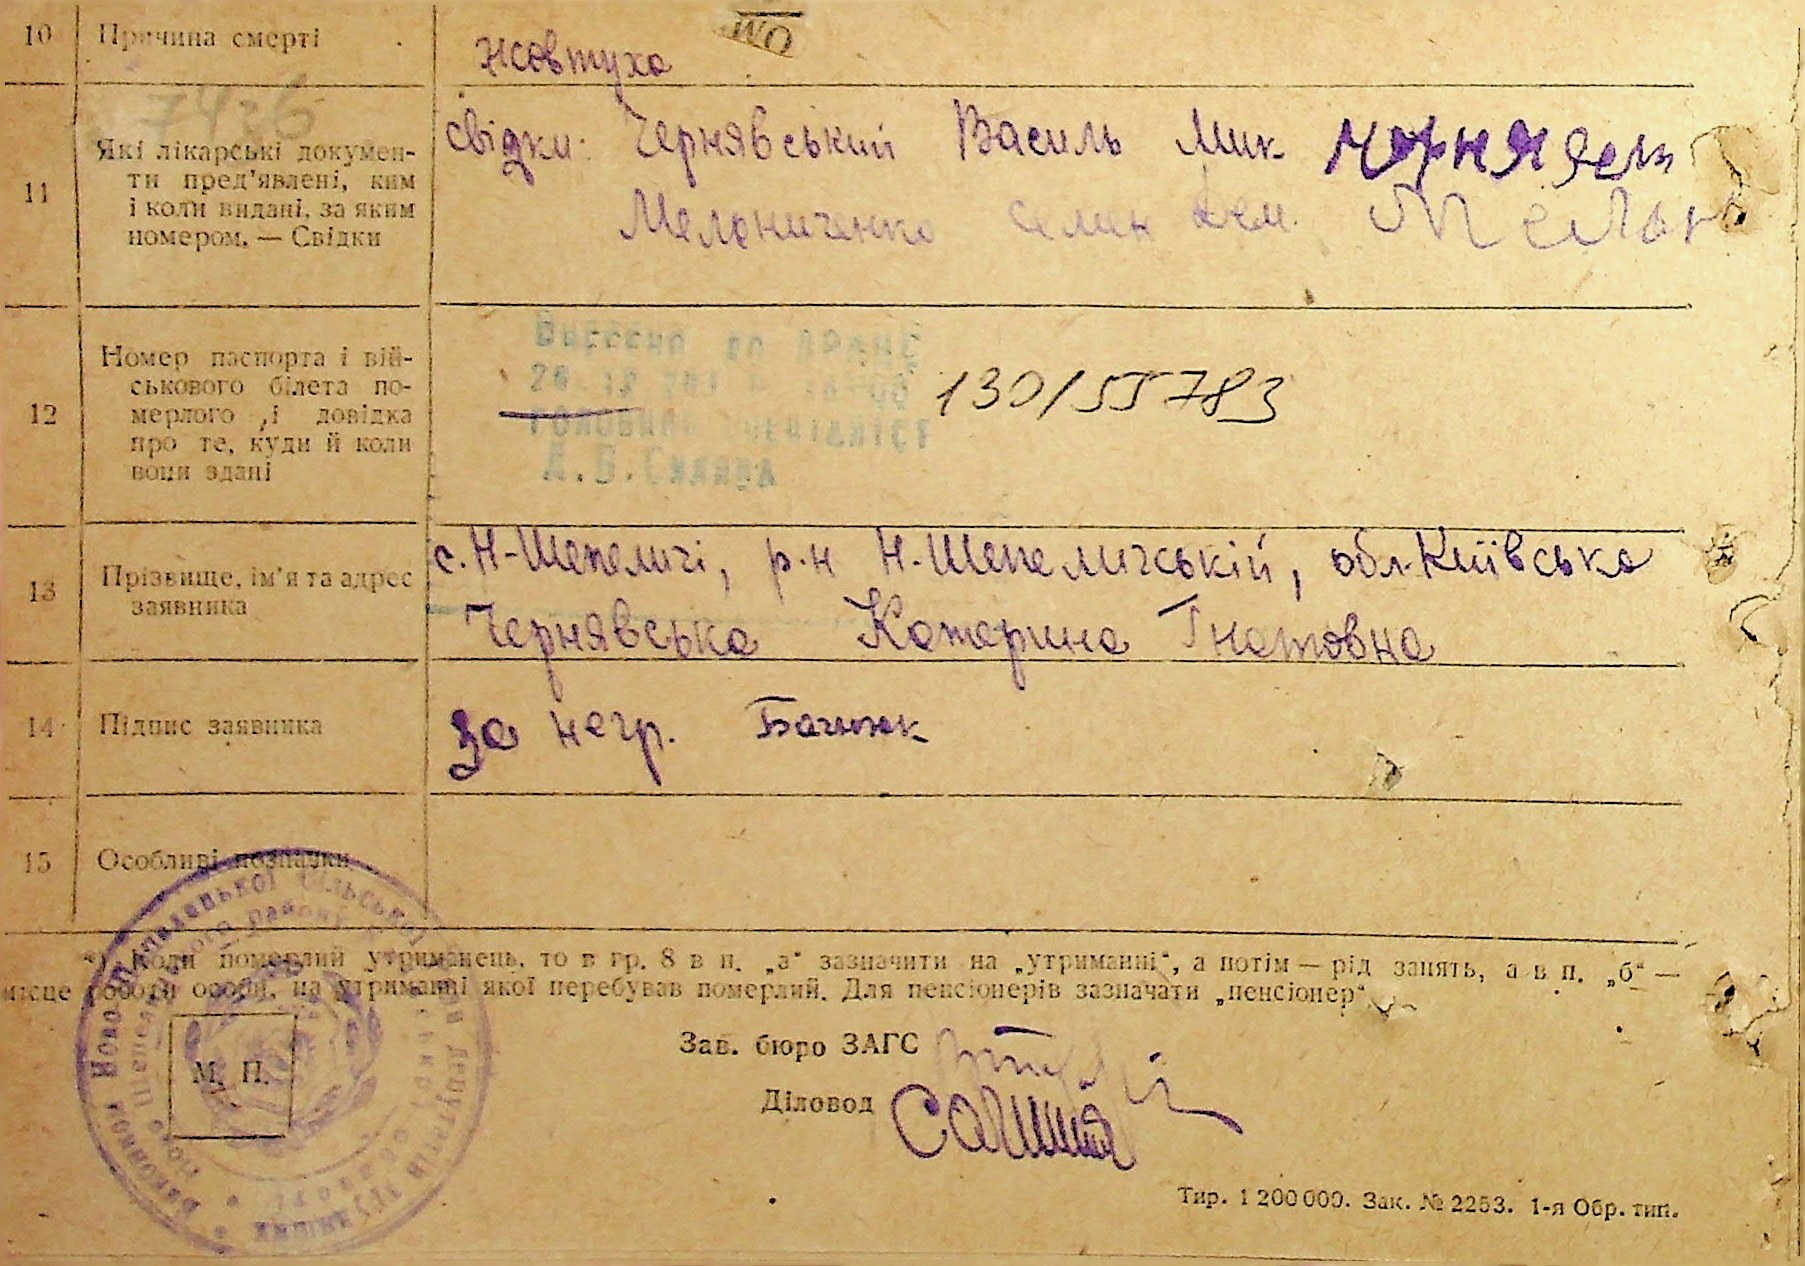 10 Причина смерті
жовтуха
7426
11 Які лікарські докумен-
ти пред'явлені, ким
і коли видані, за яким
номером. — Свідки
свідки: Чернявський Василь Мик.
Мельниченко
12 Номер паспорта і вій-
ськового білета по-
мерлого і довідка
про те, куди й коли
вони здані
Внесено до ДРАЦС
130/55783
13 Прізвище, ім'я та адрес
заявника
с. Н-Шепеличі, р-н Н.-Шепеличській, обл. Київська
Чернявська Катерина Гнатовна
14 Підпис заявника
за негр.
15 Особливі позначки
*) Коли померлий утриманець, то в гр. 8 в п. „а“ зазначити на „утриманні“, а потім — рід занять, а в п. „б“ —
місце роботи особи, на утриманні якої перебував померлий. Для пенсіонерів зазначати „пенсіонер“
М. П.
Зав. бюро ЗАГС
Діловод
Тир. 1 200 000. Зак. № 2253. 1-я Обр. тип.